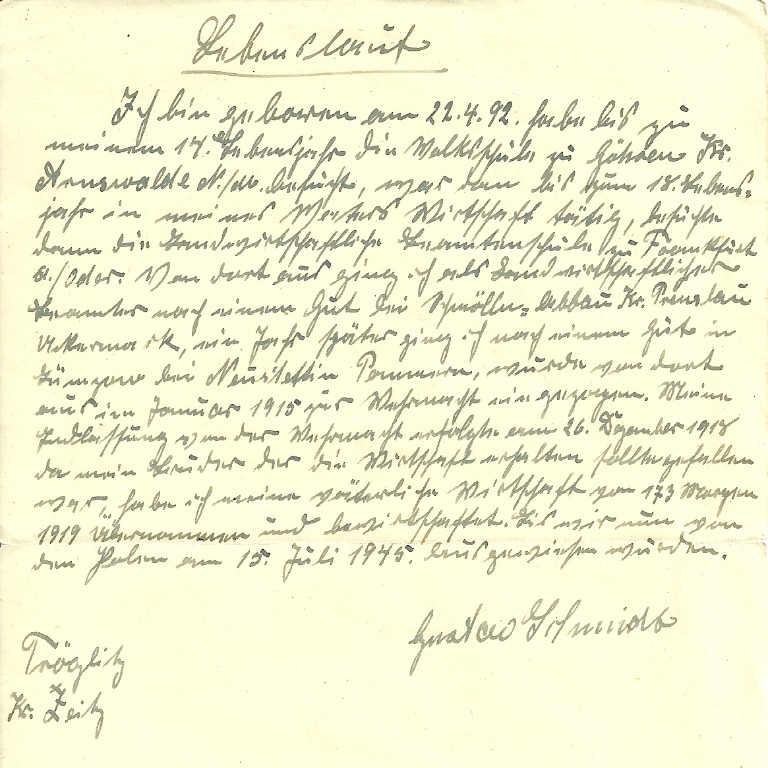 Lebenslauf
Ich bin geboren am 22.4.92. habe bis zu
meinem 14. Lebensjahr die Volksschule zu Göhren Kr.
Arnswalde N./M. besucht, war dan bis zum 18. Lebens-
jahr in meines Vaters Wirtschaft tätig, besuchte
dann die Landwirtschaftliche Beamtenschule zu Frankfurt
a./Oder. Von dort aus ging ich als Landwirtschaftlicher
Beamter nach einem Gut bei Schmölln-Abbau Kr. Prenzlau
Uckermark, ein Jahr später ging ich nach einem Gut in
bei Neustettin Pommern, wurde von dort
aus im Januar 1915 zur Wehrmacht eingezogen. Meine
Endlassung von der Wehrmacht erfolgte am 26. Dezember 1918
da mein Bruder der die Wirtschaft erhalten sollte gefallen
war, habe ich meine väterliche Wirtschaft von 173 Morgen
1919 Übernommen und bewirtschaftet. Bis wir nun von
den Polen am 15. Juli 1945. ausgewiesen wurden.
Gustav Schmidt
Tröglitz
Kr. Zeitz